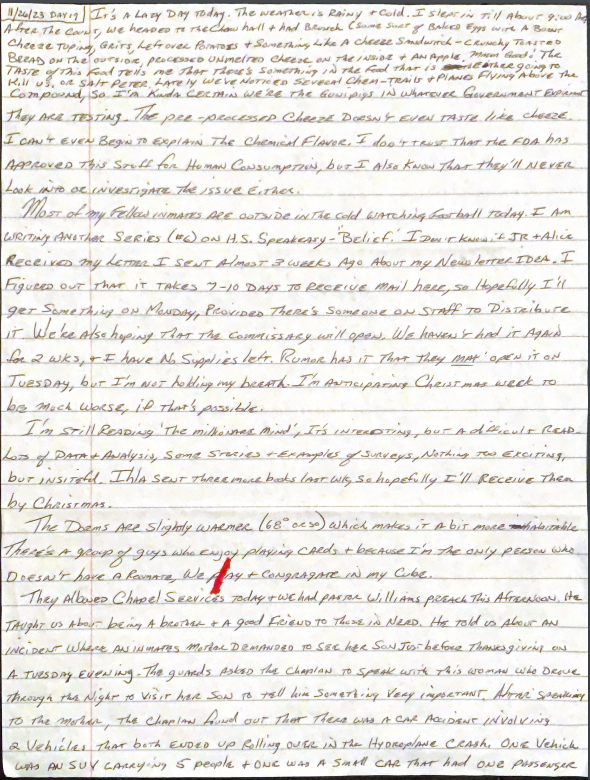 11/26/23 DAY 19 It's a Lazy Day Today. The weather is Rainy + Cold. I slept in Till About 9:00 Am
After The Count, We headed to the Chow hall + had Brunch (Some Sort of Baked Eggs with A Burnt
Cheeze Toping, Grits, Leftover Potatoes + Something Like A Cheeze Sandwich - Crunchy Toasted
Bread on the outside, processed unmelted cheeze on the inside + An Apple. Damn Good! The
Taste of This Food Tells me That There's Something in the Food that is either going to
Kill us, or Salt Peter. Lately We've Noticed Several Chem-Trails + Planes Flying Above the
Compound, So I'm Kinda Certain we're the Gunipigs in Whatever Government Experiment
They are Testing. The pre-processed Cheeze Doesn't Even Taste like cheeze.
I can't Even Begin to Explain The Chemical Flavor. I don't Trust that the FDA has
Approved This Stuff for Human Consumption, but I Also Know That They'll Never
Look into or investigate the issue Either.
Most of my Fellow inmates are outside in the cold watching Football today. I Am
Writing Another Series (#6) on H.S. Speakeasy - 'Belief.' I Don't Know if JR + Alice
Received my Letter I Sent Almost 3 weeks Ago About my Newsletter IDEA. I
Figured out that it takes 7-10 Days to Receive mail here, so Hopefully I'll
get Something on Monday, Provided There's Someone on Staff to Distribute
it. We're Also hoping That the Commissary will open. We haven't had it Again
for 2 wks, + I have No Supplies left. Rumor has it That they may open it on
Tuesday, but I'm not holding my breath. I'm Anticipating Christmas week to
be much worse, if that's possible.
I'm Still Reading 'The Millionare Mind', It's interesting, but A difficult Read.
Lots of Data + Analysis, Some Stories + Examples of Surveys, Nothing Too Exciting,
but insiteful. Sent Three more books last wk, so hopefully I'll Receive Them
by Christmas.
The Dorms Are Slightly Warmer (68° or so) Which makes it A bit more habitable
There's A group of guys who enjoy playing cards + because I'm the only person who
Doesn't have a Roomate, We play + Congragate in my Cube.
They Allowed Chapel Services today + we had Pastor Williams preach This Afternoon. He
Taught us About being A brother + A good Friend to Those in Need. He told us About an
incident Where An inmates Mother Demanded to See her Son Just before Thanksgiving on
A Tuesday Evening. The guards Asked the Chaplan to Speak with this woman who Drove
Through the Night to Visit her Son to tell him Something Very important. After Speaking
to the mother, The Chaplan found out That There was A Car Accident involving
2 Vehicles that both ended up Rolling over in the Hydroplane Crash. One Vehicle
Was An SUV Carrying 5 people + One was A Small car that had one passenger